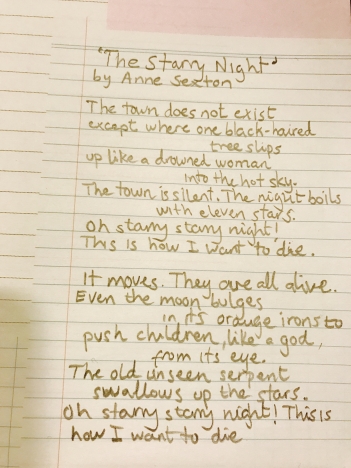 "The Starry Night"
by Anne Sexton
The town does not exist
except where one black-haired
tree slips
up like a drowned woman
into the hot sky.
The town is silent. The night boils
with eleven stars.
Oh starry starry night!
This is how I want to die.
It moves. They are all alive.
Even the moon bulges
in its orange irons to
push children, like a god,
from its eye.
The old unseen serpent
swallows up the stars.
Oh starry starry night! This is
how I want to die